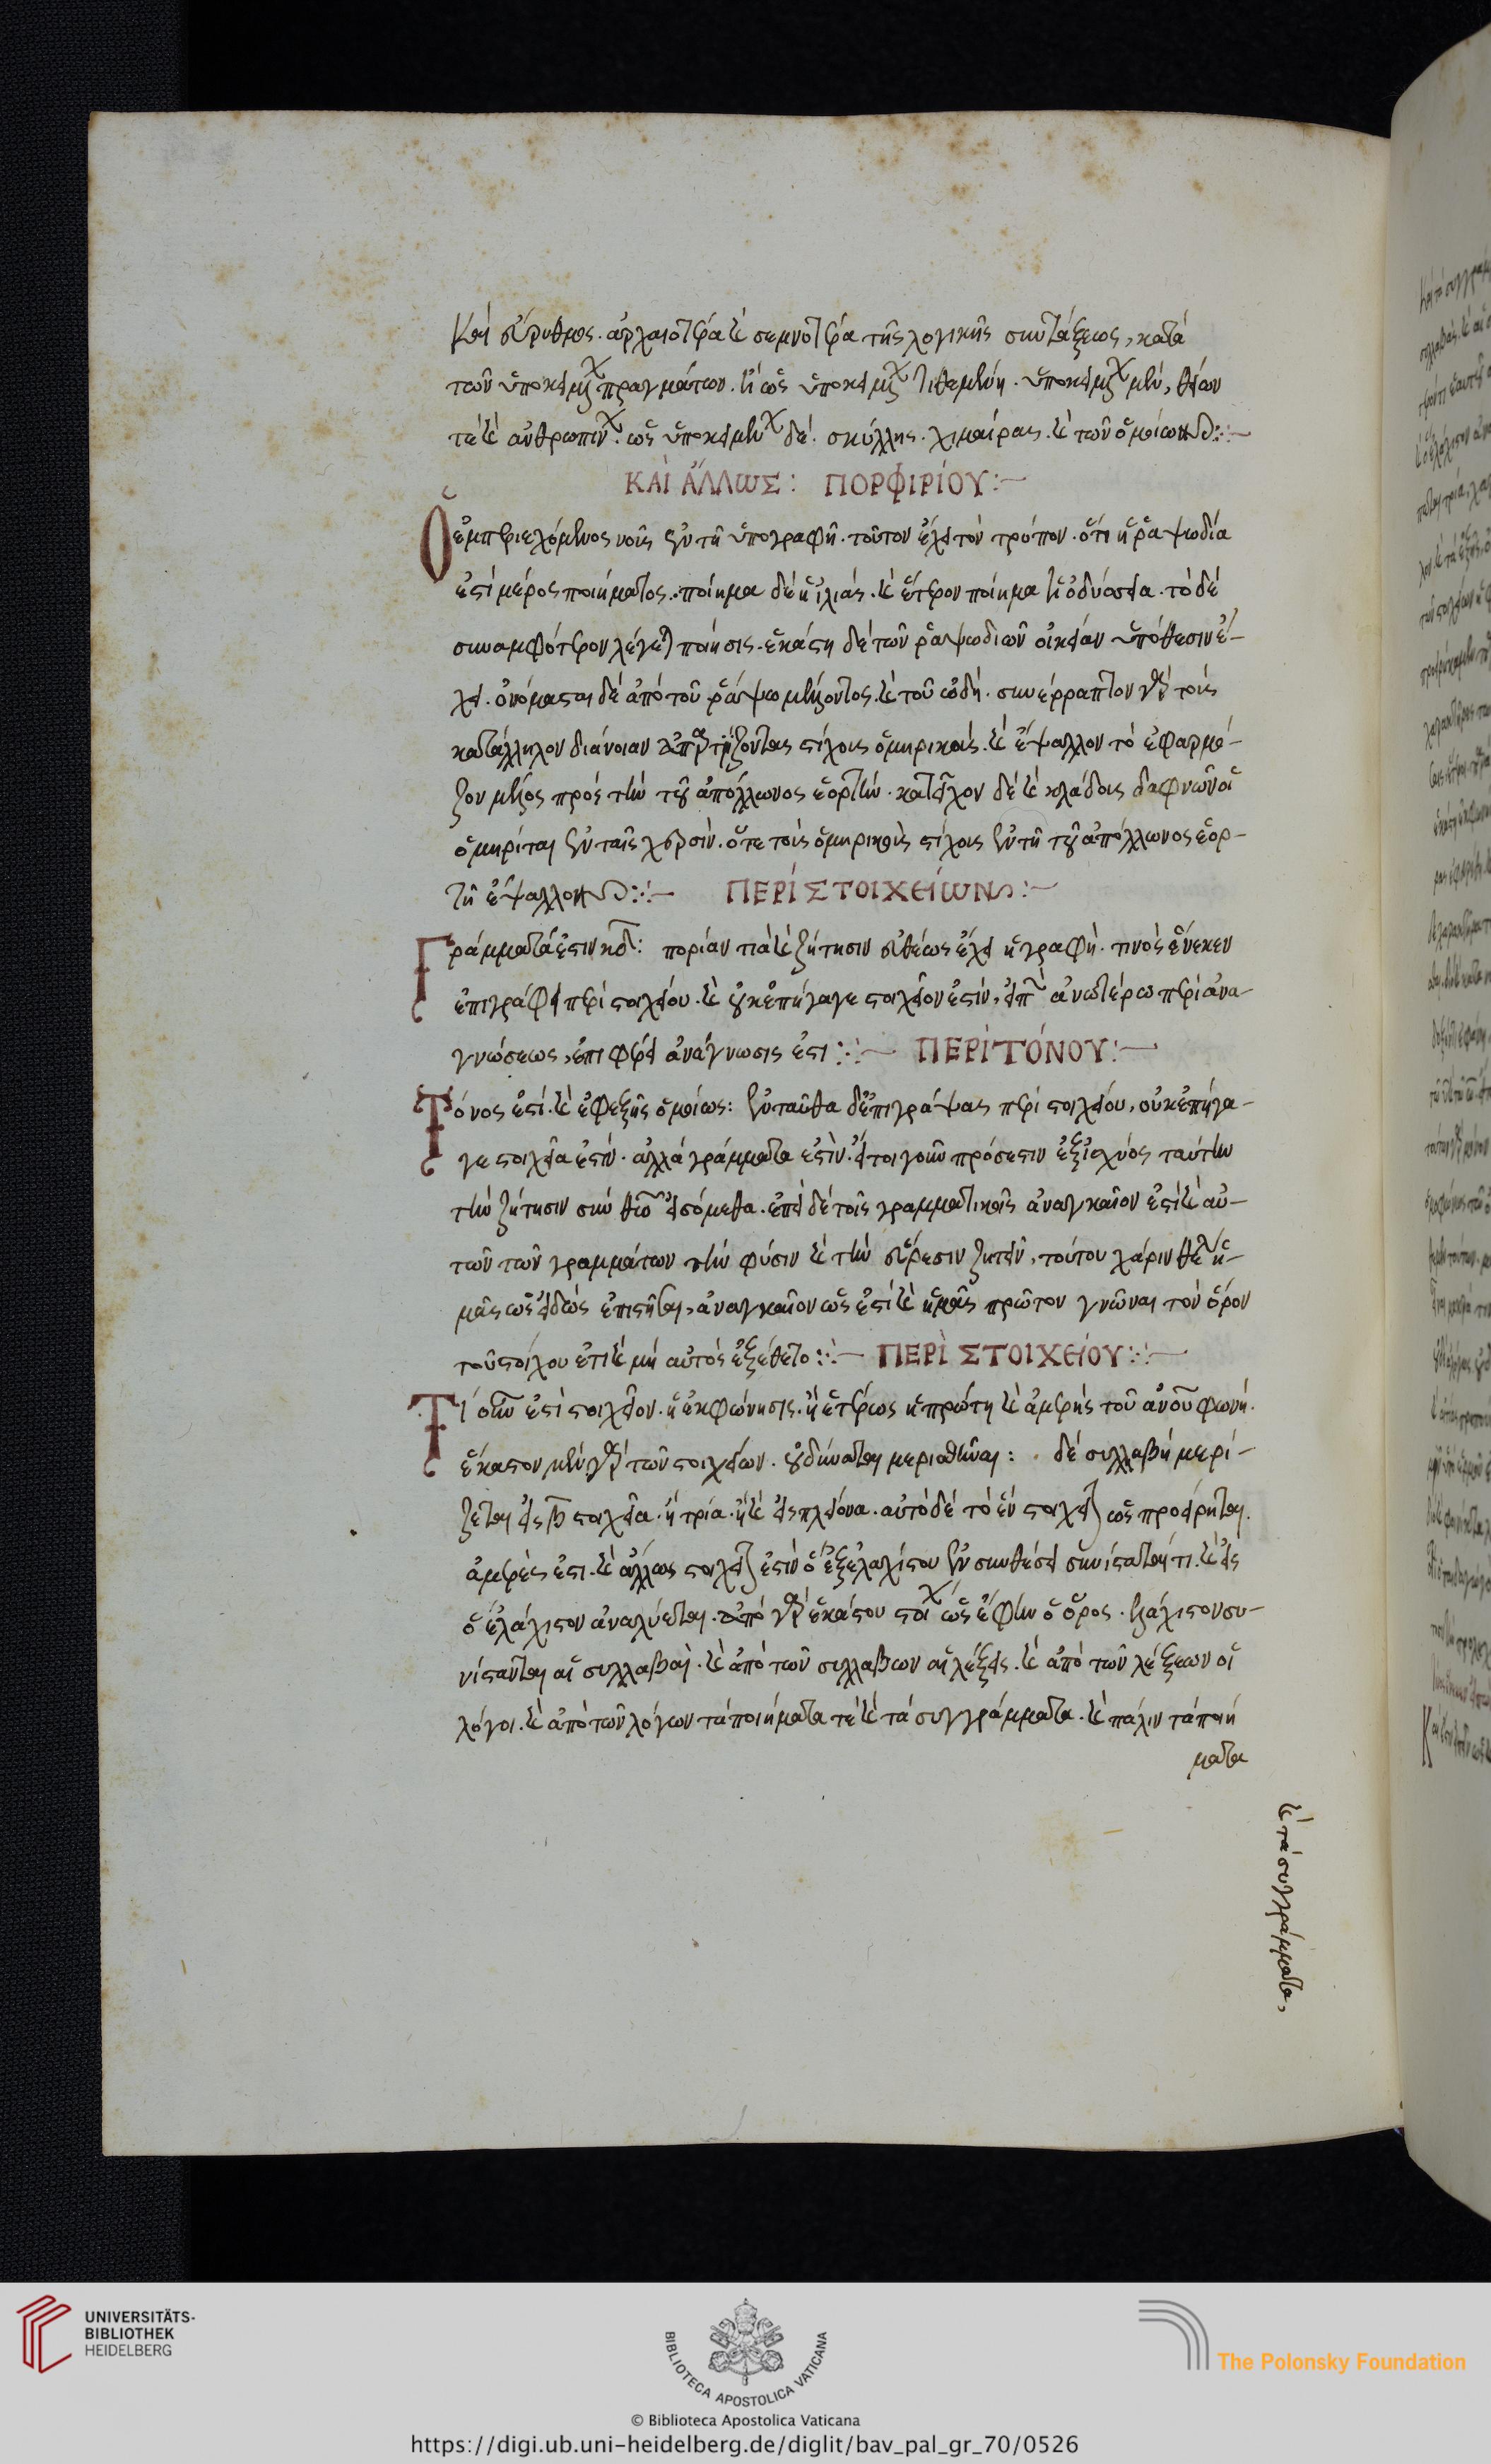 καὶ εὔρυθμος. ἀρχαιοτέρα καὶ σεμνοτέρα τῆς λογικῆς συντάξεως, κατὰ
τῶν ὑποκειμένων πραγμάτων. ἢ ὡς ὑποκειμένων τιθεμένη. ὑποκειμένων μὲν, θείων
τὲ καὶ ἀνθρωπίνων. ὡς ὑποκειμένων δὲ. σκύλλης. χιμαίρας. καὶ τῶν ὁμοίων:~
ΚΑῚ ἌΛΛΩΣ: ΠΟΡΦΙΡΊΟΥ:~
Ὁ ἐμπεριεχόμενος νοῦς ἐν τῇ ὑπογραφῇ. τοῦτον ἔχει τὸν τρόπον. ὅτι ἡ ῥαψωδία
ἐστὶ μέρος ποιήματος. ποίημα δὲ ἡ ἰλιάς. καὶ ἕτερον ποίημα ἡ ὀδύσσεια. τὸ δὲ
συναμφότερον λέγεται ποίησις. ἑκάστη δὲ τῶν ῥαψωδιῶν οἰκείαν ὑπόθεσιν ἔ-
χει. ὀνόμασται δὲ ἀπὸ τοῦ ῥάψω μέλλοντος. καὶ τοῦ ὠδή. συνέρραπτον γὰρ τοὺς
κατάλληλον διάνοιαν ἀπαρτίζοντας στίχους ὁμηρικούς. καὶ ἔψαλλον τὸ ἐφαρμό-
ζον μέλος πρὸς τὴν τοῦ ἀπόλλωνος ἑορτήν. κατεῖχον δὲ καὶ κλάδους δαφνῶν οἱ
ὁμηρίται ἐν ταῖς χερσὶν. ὅτε τοὺς ὁμηρικοὺς στίχους ἐν τῇ τοῦ ἀπόλλωνος ἑορ-
τῇ ἔψαλλον:~ ΠΕΡῚ ΣΤΟΙΧΕΊΩΝ:~
Γράμματά ἐστιν κδ: πορίαν τινὰ καὶ ζήτησιν εὐθέως ἔχει ἡ γραφή. τινὸς ἕνεκεν
ἐπιγράφει περὶ στοιχείου. καὶ οὐκ ἐπήγαγε στοιχεῖον ἐστίν, ἀνωτέρω περὶ ἀνα-
γνώσεως, ἐπιφέρει ἀνάγνωσις ἐστι:~ ΠΕΡῚ ΤΌΝΟΥ:~
Τόνος ἐστί. καὶ ἐφεξῆς ὁμοίως: ἐνταῦθα δ᾽ ἐπιγράψας περὶ στοιχείου, οὐκ ἐπήγα-
γε στοιχεῖα ἐστίν. ἀλλὰ γράμματα ἐστὶν. πρόσεστιν ἐξ ἰσχύος ταύτην
τὴν ζήτησιν σὺν θεῷ εἰσόμεθα. ἐπεὶ δὲ τοῖς γραμματικοῖς ἀναγκαῖον ἐστὶ καὶ αὐ-
τῶν τῶν γραμμάτων τὴν φύσιν καὶ τὴν εὕρεσιν ζητεῖν, τούτου χάριν θέλει ἡ-
μᾶς ὡς εἰδὼς ἐπιστῆσαι, ἀναγκαῖον ὡς ἐστὶ καὶ ἡμᾶς πρῶτον γνῶναι τὸν ὅρον
τοῦ στοίχου ἔτι καὶ μὴ αὐτὸς ἐξέθετο:~ ΠΕΡῚ ΣΤΟΙΧΕΊΟΥ:~
Τί οὖν ἐστὶ στοιχεῖον. ἡ ἐκφώνησις. ἢ ἑτέρως ἡ πρώτη καὶ ἀμερὴς τοῦ ἀνου φωνή.
ἕκαστον μὲν γὰρ τῶν στοιχείων. οὐ δύναται μερισθῆναι: δὲ συλλαβὴ μερί-
ζεται εἰς β στοιχεῖα. ἢ τρία. ἢ καὶ εἰς πλείονα. αὐτὸ δὲ τὸ ἓν στοιχεῖον ὡς προείρηται.
ἀμερὲς ἐστι. καὶ ἄλλως στοιχεῖον ἐστὶν ὃ ἐξ ἐλαχίστου ἐν συνθέσει συνίσταταί τι. καὶ εἰς
ὃ ἐλάχιστον ἀναλύεται. ἀπὸ γὰρ ἑκάστου στοιχείου ὡς ἔφην ὁ ὅρος. ἐλάχιστον συ-
νίστανται αἱ συλλαβαὶ. καὶ ἀπὸ τῶν συλλαβῶν αἱ λέξεις. καὶ ἀπὸ τῶν λέξεων οἱ
λόγοι. καὶ ἀπὸ τῶν λόγων τὰ ποιήματα τὲ καὶ τὰ συγγράμματα. καὶ πάλιν τὰ ποιή
ματα
καὶ τὰ συγγράμματα,
UNIVERSITÄTS-
BIBLIOTHEK
HEIDELBERG
BIBLIOTECA APOSTOLICA VATICANA
The Polonsky Foundation
© Biblioteca Apostolica Vaticana
https://digi.ub.uni-heidelberg.de/diglit/bav_pal_gr_70/0526